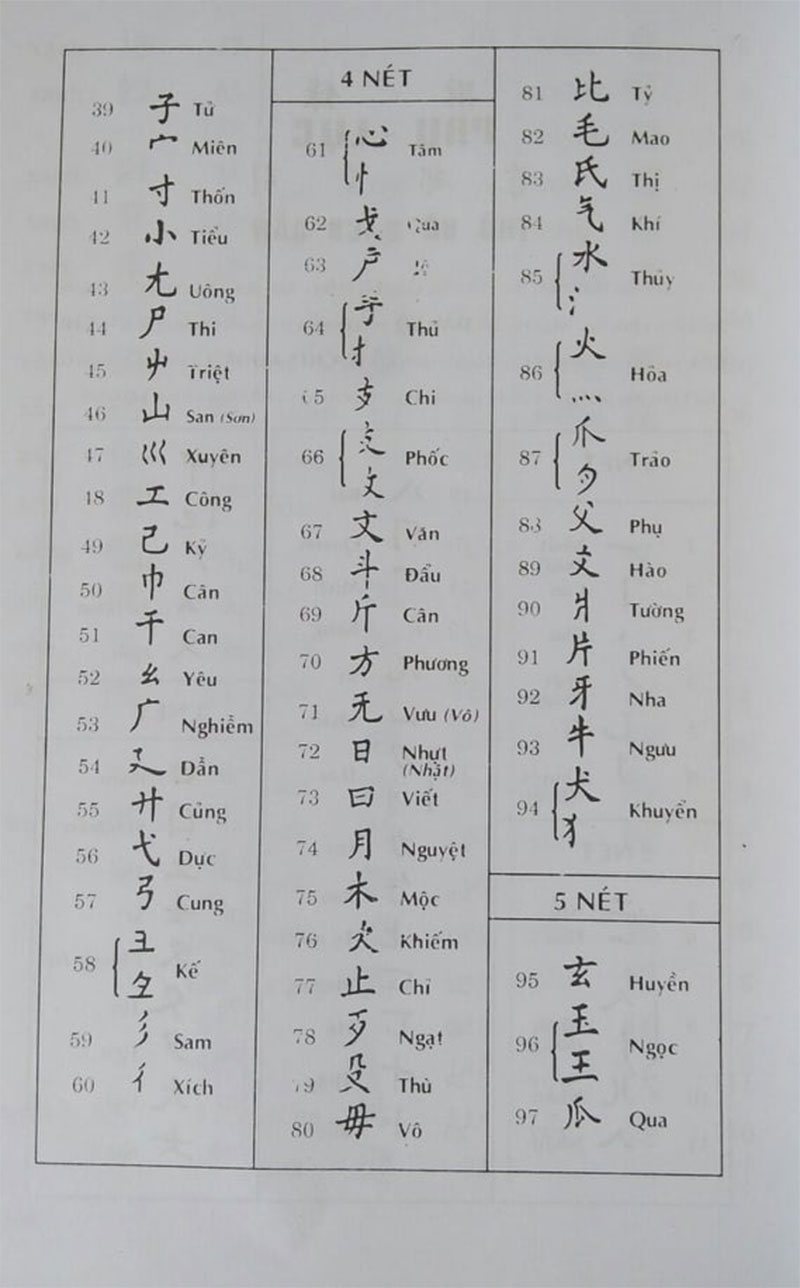 39 子 Tử
40 宀 Miên
41 寸 Thốn
42 小 Tiểu
43 尢 Uông
44 尸 Thi
45 屮 Triệt
46 山 San (Sơn)
47 巛 Xuyên
48 工 Công
49 己 Kỷ
50 巾 Cân
51 干 Can
52 幺 Yêu
53 广 Nghiễm
54 廴 Dẫn
55 廾 Củng
56 弋 Dực
57 弓 Cung
58 彐 彑 Kế
59 彡 Sam
60 彳 Xích
4 NÉT
61 心 忄 Tâm
62 戈 Qua
63 戶
64 手 扌 Thủ
65 支 Chi
66 攴 攵 Phốc
67 文 Văn
68 斗 Đẩu
69 斤 Cân
70 方 Phương
71 无 Vưu (Vô)
72 日 Nhựt
(Nhật)
73 曰 Viết
74 月 Nguyệt
75 木 Mộc
76 欠 Khiếm
77 止 Chỉ
78 歹 Ngạt
79 殳 Thù
80 毋 Vô
81 比 Tỷ
82 毛 Mao
83 氏 Thị
84 气 Khí
85 水 氵 Thủy
86 火 灬 Hỏa
87 爪 爫 Trảo
88 父 Phụ
89 爻 Hào
90 爿 Tường
91 片 Phiến
92 牙 Nha
93 牛 Ngưu
94 犬 犭 Khuyển
5 NÉT
95 玄 Huyền
96 玉 王 Ngọc
97 瓜 Qua